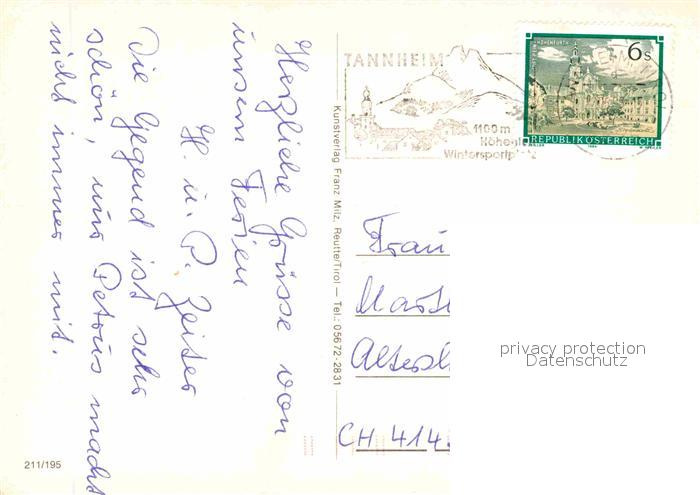 Herzliche Grüsse von
unsern Ferien
H. u. P. Zeiter
Die Gegend ist sehr
schön, nur Petrus macht
nicht immer mit.
Kunstverlag Franz Milz, Reutte/Tirol — Tel.: 05672-2831
TANNHEIM
1100 m
Wintersportplatz
6 S
REPUBLIK ÖSTERREICH
Frau
CH 414
privacy protection
Datenschutz
211/195